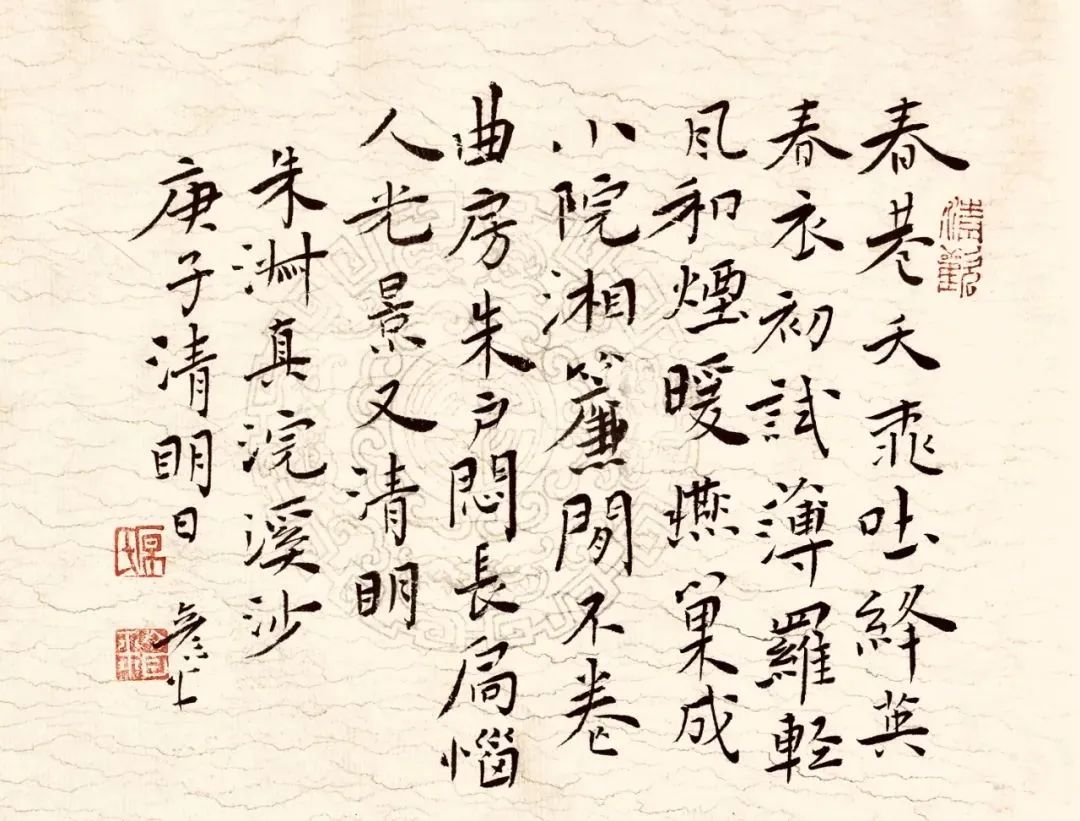 春巷夭乖吐絳英
春衣初試薄羅輕
風和煙暖燕巢成
小院湘簾閒不卷
曲房朱戶悶長扃惱
人光景又清明
朱淑真浣溪沙
庚子清明日